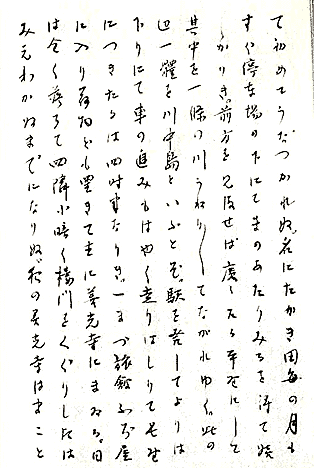 て初めてうなづかれぬ名にたかき田毎の月も
すや停車場の下にてまのあたりみるを得て嬉
しかりき前方を見渡せば廣々たる平野にして
其中を一條の川うねり〳〵てながれゆく此の
辺一體を川中島といふとぞ駅を発してよりは
下りにて車の進みもはやく走りはしりて長野
につきたるは四時半なりき一まづ旅館ふぢ屋
に入り荷物をも置きて主に善光寺にまゐる日
は全く落ちて四隣小暗く楼門をくゞりし頃は
みえわかぬまでになりぬ夜の善光寺はまこと